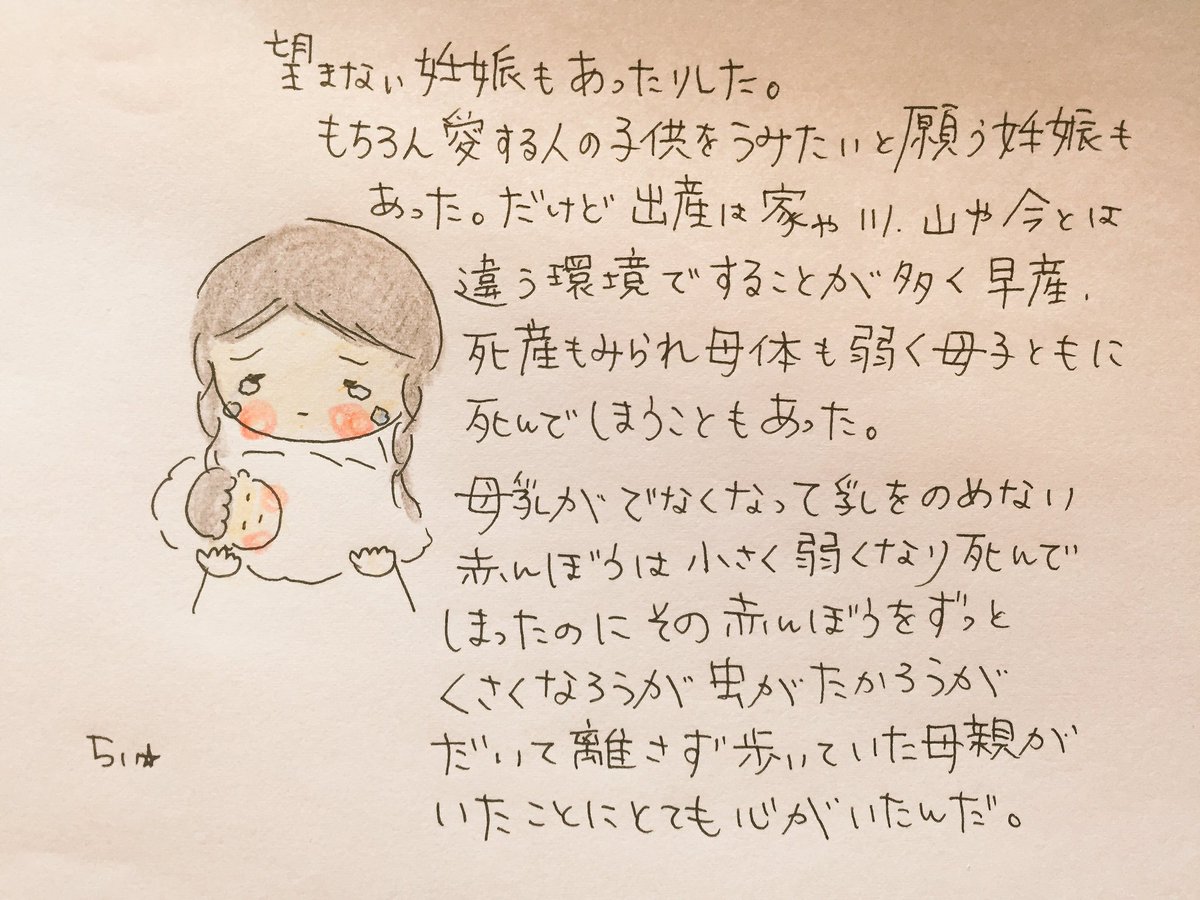 望まない妊娠もあったりした。
もちろん愛する人の子供をうみたいと願う妊娠も
あった。だけど出産は家や川、山や今とは
違う環境ですることが多く早産、
死産もみられ母体も弱く母子ともに
死んでしまうこともあった。
母乳がでなくなって乳をのめない
赤んぼうは小さく弱くなり死んで
しまったのにその赤んぼうをずっと
くさくなろうが虫がたかろうが
だいて離さず歩いていた母親が
いたことにとても心がいたんだ。
らい★